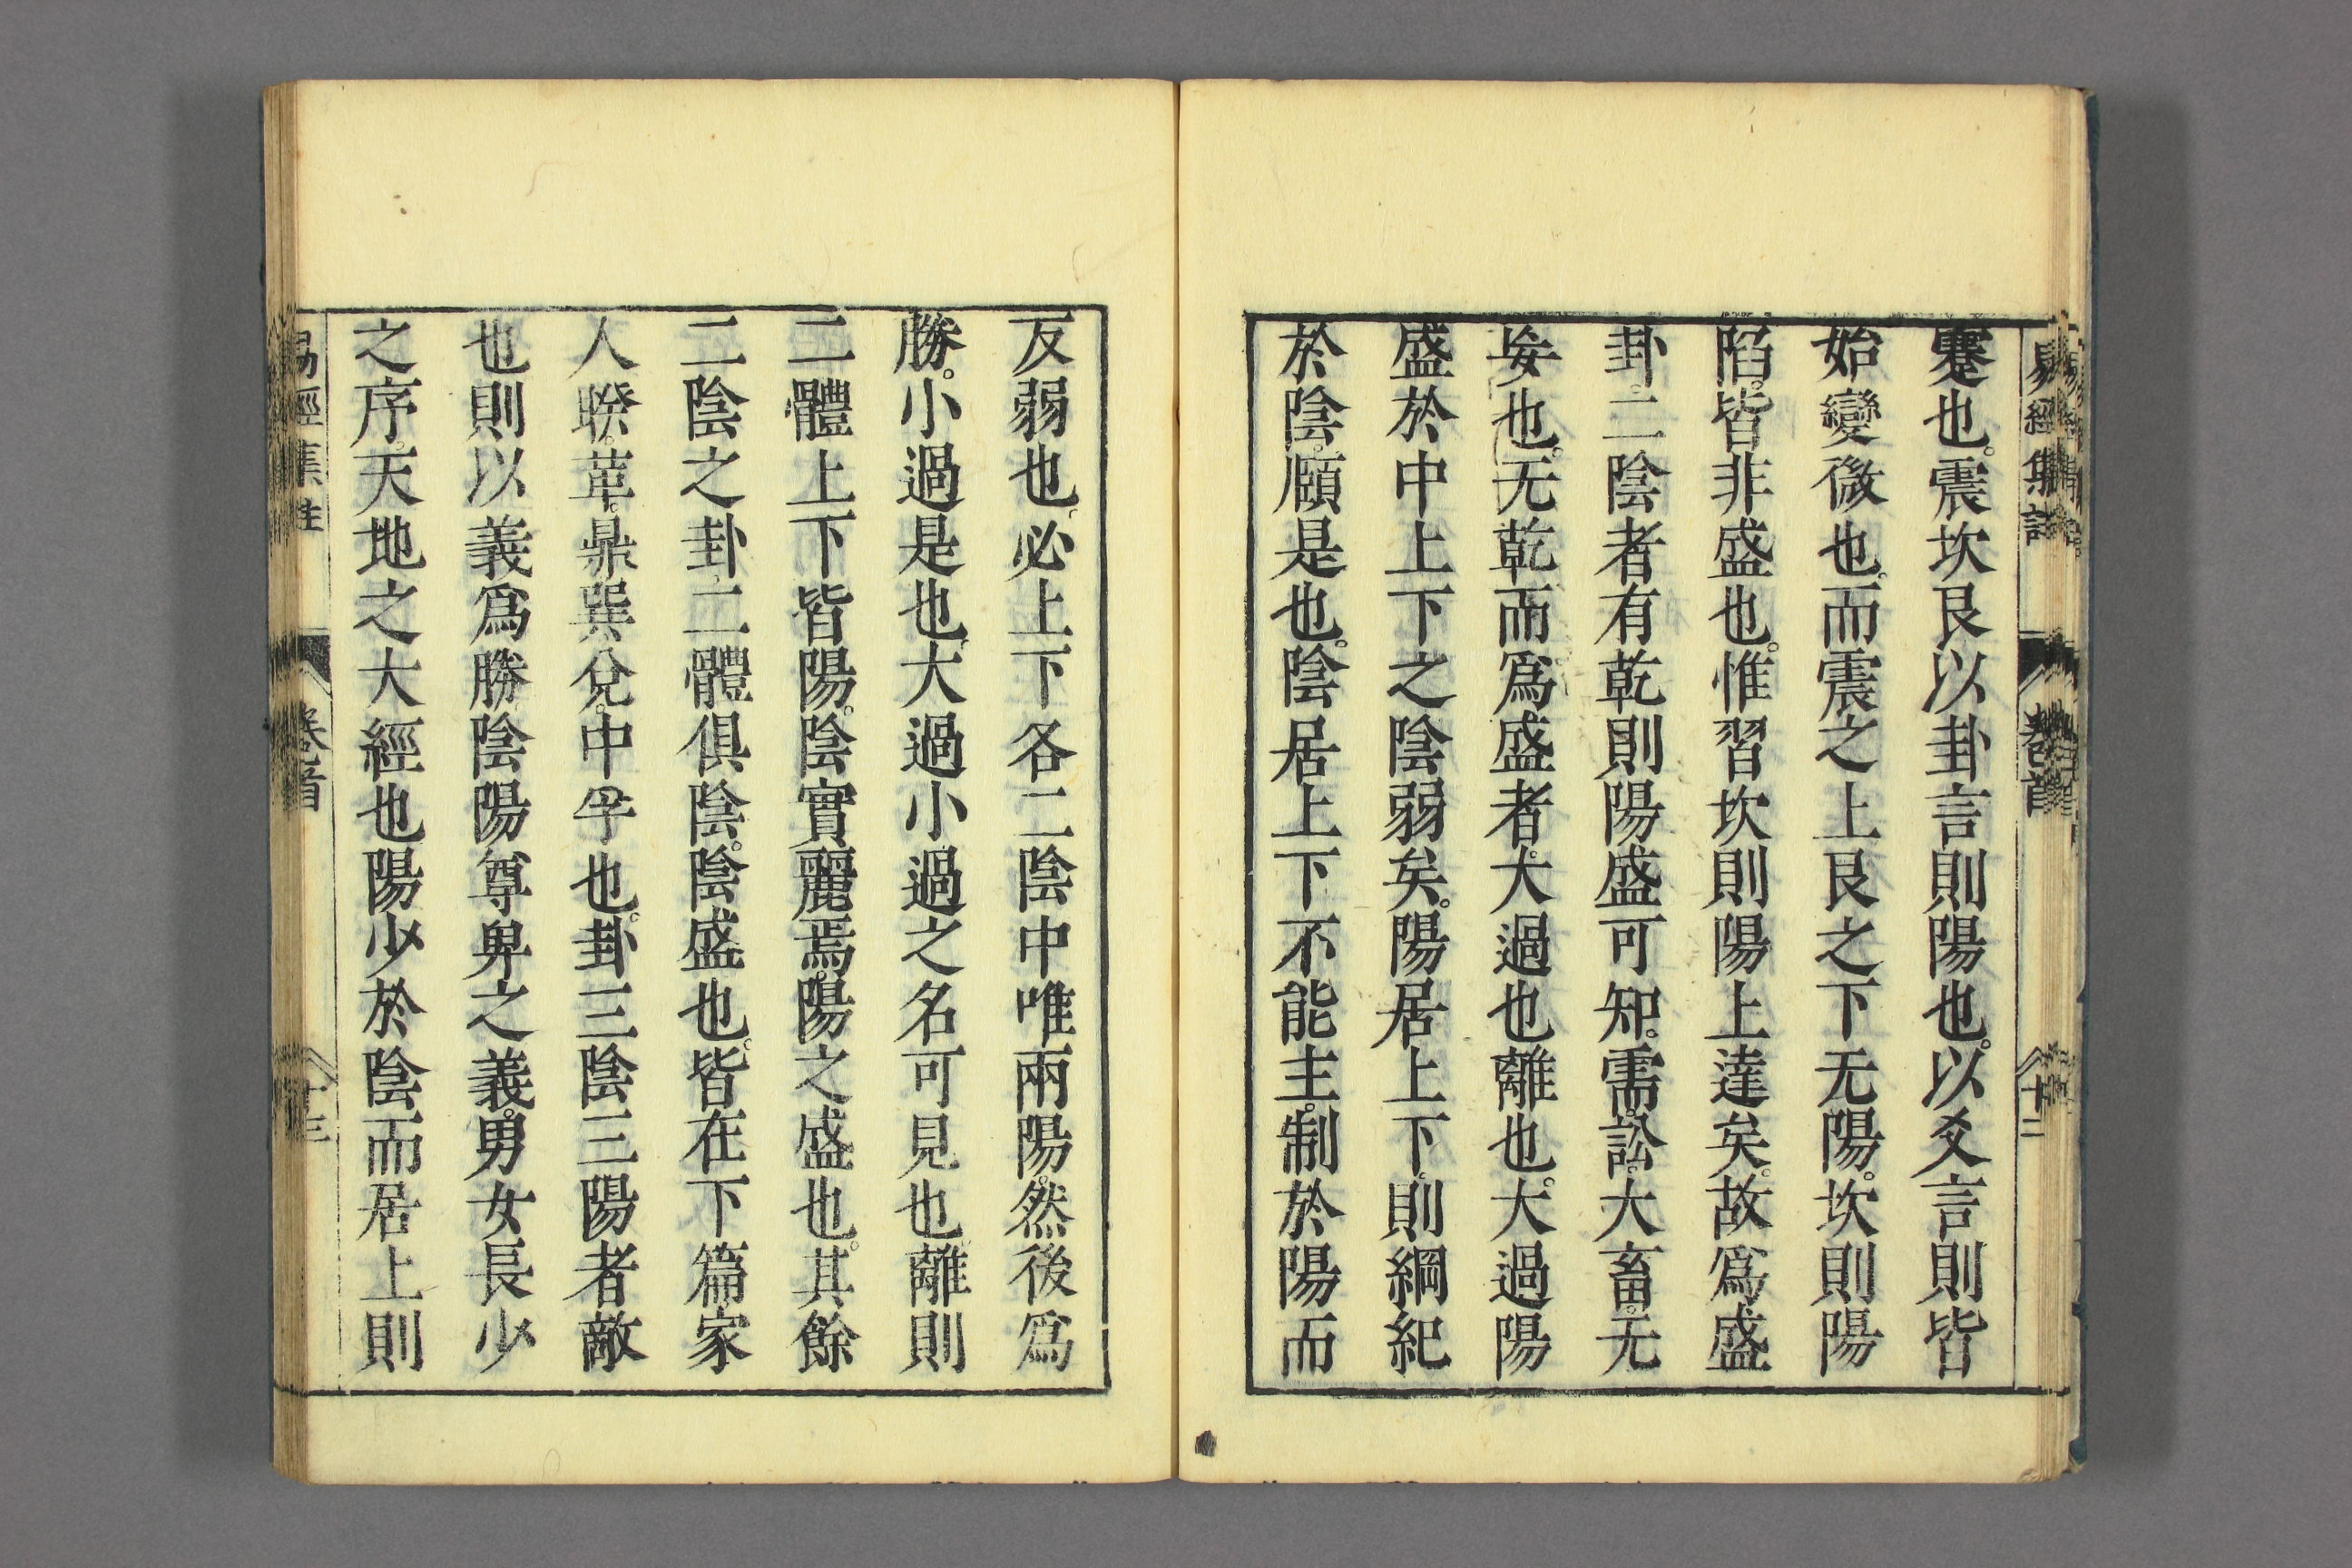 易經集註 卷首 十二
蹇也。震坎艮以卦言則陽也。以爻言則皆
始變微也。而震之上艮之下无陽。坎則陽
陷。皆非盛也。惟習坎則陽上達矣。故爲盛
卦。二陰者有乾則陽盛可知。需。訟。大畜。无
妄也。无乾而爲盛者。大過也離也。大過陽
盛於中上下之陰弱矣。陽居上下。則綱紀
於陰。頤是也。陰居上下不能主。制於陽而
反弱也。必上下各二陰中唯兩陽。然後爲
勝。小過是也。大過小過之名可見也離則
二體上下皆陽。陰實麗焉。陽之盛也。其餘
二陰之卦二體俱陰。陰盛也。皆在下篇。家
人。睽。革。鼎。巽。兌。中孚也。卦三陰三陽者敵
也則以義爲勝陰陽尊卑之義。男女長少
之序。天地之大經也陽少於陰而居上則
易經集註 卷首 十三